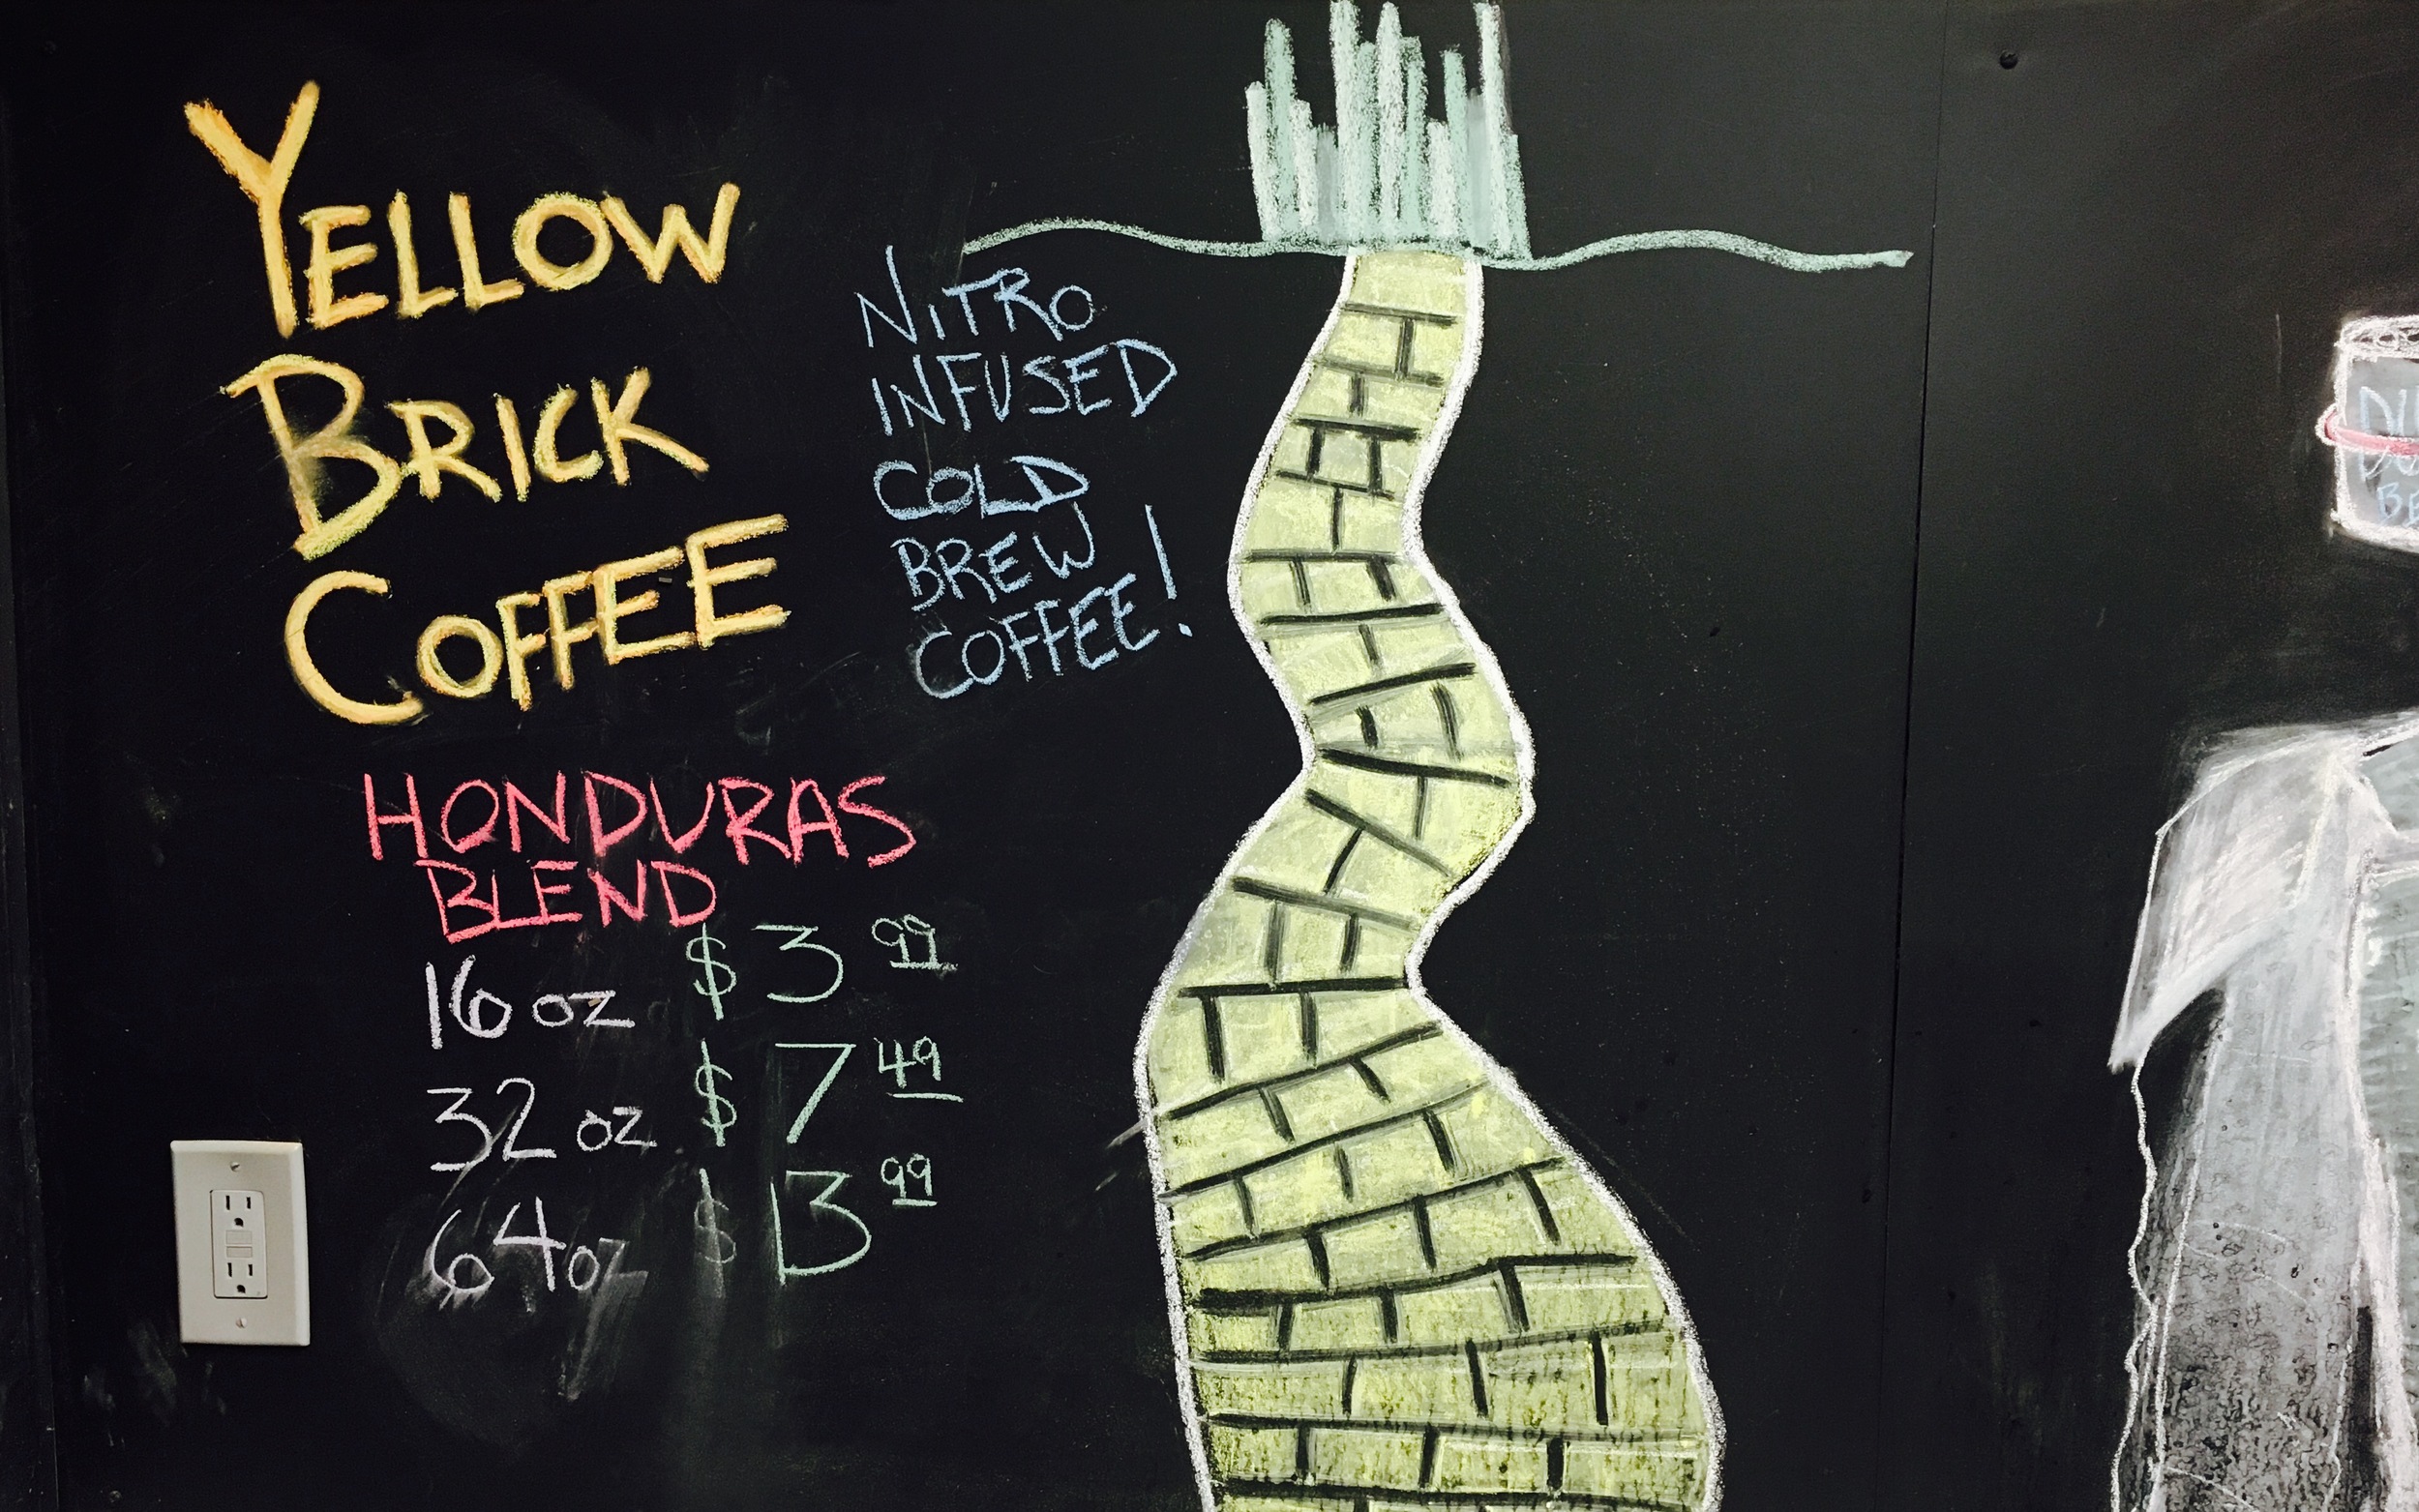 YELLOW
BRICK
COFFEE
NITRO
INFUSED
COLD
BREW
COFFEE!
HONDURAS
BLEND
16 oz $3 99
32 oz $7 49
64 oz $13 99